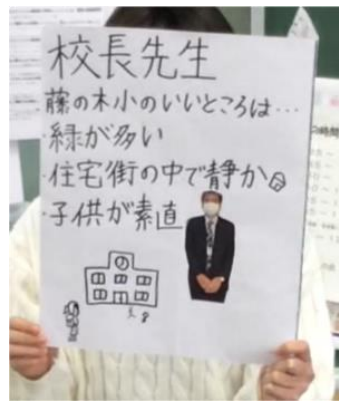 校長先生
藤の木小のいいところは…
・緑が多い
・住宅街の中で静か
・子供が素直